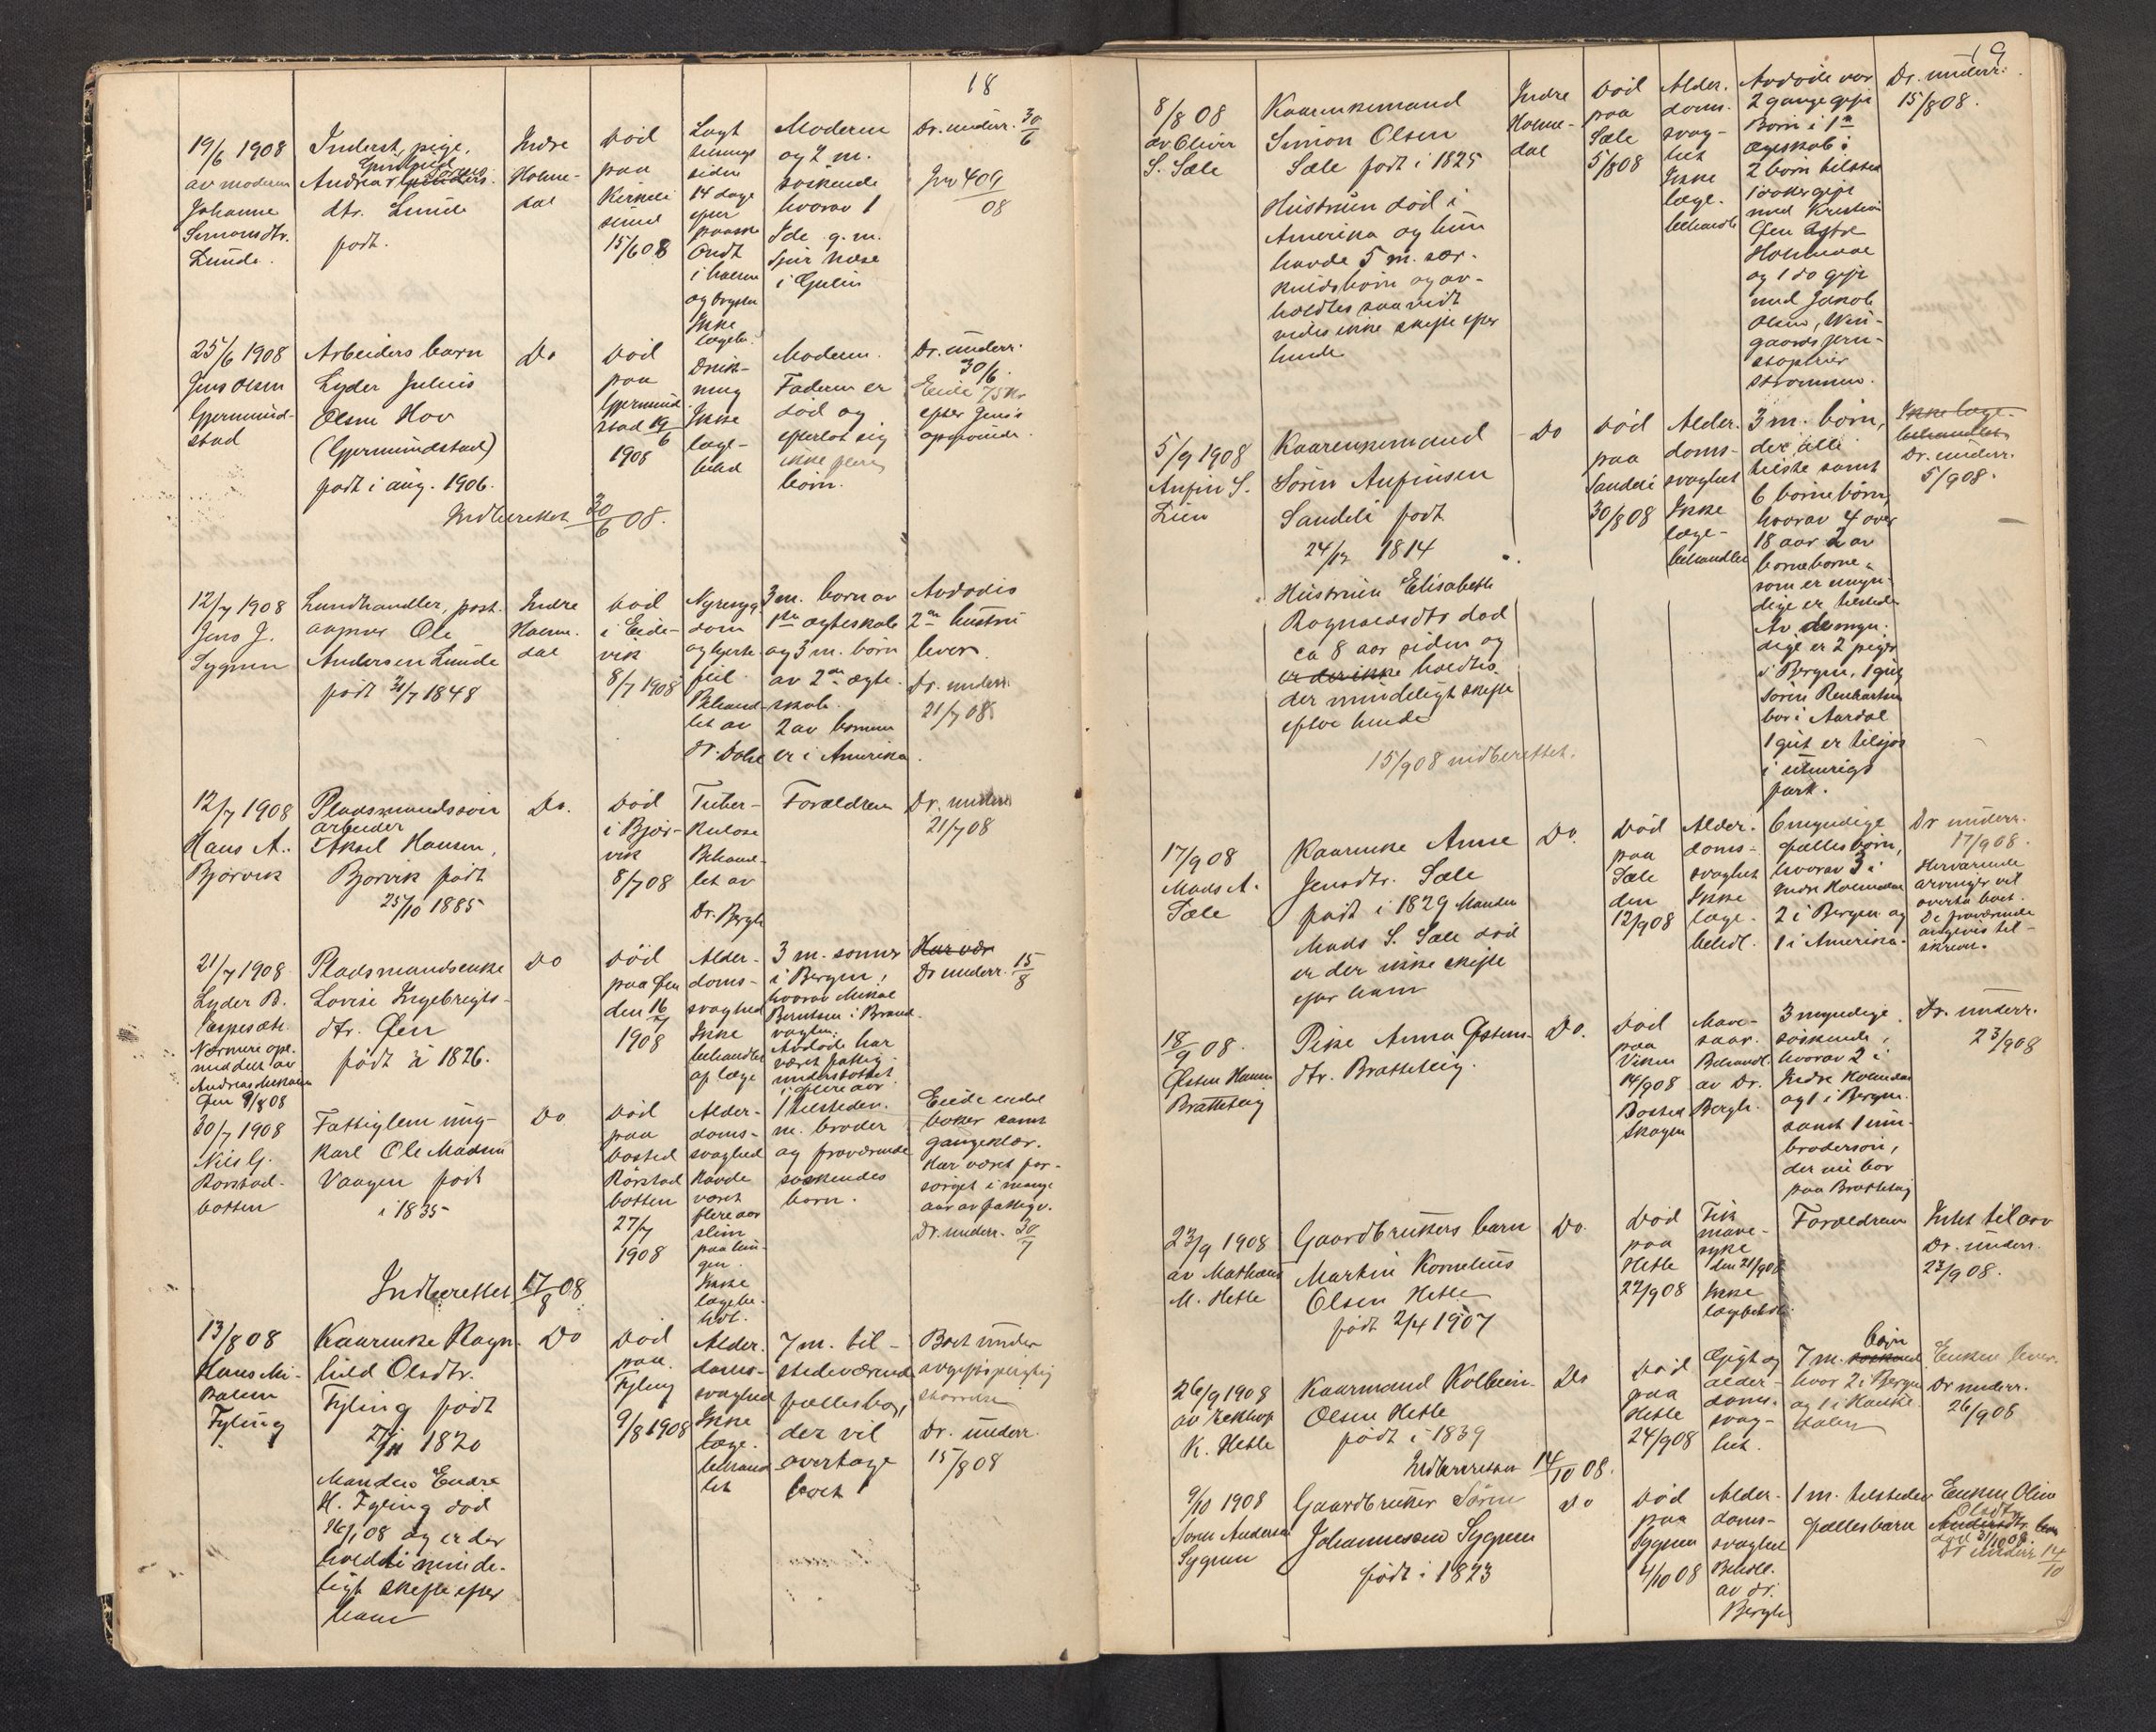 18
19/6 1908
av moderen
Johanne
Simonsdtr.
Lunde.
Inderst, pige,
Andrea
dtr. Lunde
født.
Indre
Holme-
dal
Død
paa
sund
15/6 08
Lagt
tilsengs
siden
14 dage
efter
paaske
Ondt
i halsen
og brystet
Ikke
lægebe.
Moderen
og 2 m.
søskende
hvorav 1
g. m.
i Gulen
Dr. underr. 30/6
Jnr 409/08
25/6 1908
Jens Olsen
Gjermund-
stad
Arbeiders barn
Lyder Julius
Olsen Hov
(Gjermundstad)
født i aug. 1906.
Do
Død
paa
Gjermund-
stad 19/6
1908
Drukn-
ing
Ikke
læge-
behd
Moderen.
Faderen er
død og
efterlot sig
ikke flere
børn.
Dr. underr.
30/6.
Eiede 75 Kr
efter Jens's
opgivende.
Indberettet 30/6 08.
12/7 1908
Jens J.
Sygnen
Landhandler, post-
aapner Ole
Andersen Lunde
født 31/7 1848
Indre
Holme-
dal
Død
i Eide-
vik
8/7 1908
Nyresyg-
dom
og hjerte-
feil.
Behand-
let av
Dr. Dahe
3 m. børn av
1ste egteskab
og 3 m. børn
av 2det egte-
skab.
2 av børnene
er i Amerika.
Avdødes
2en hustru
lever.
Dr. underr.
21/7 08
12/7 1908
Hans A.
Bjørvik
Pladsmandssøn
arbeider
Aksel Hansen,
Bjørvik født
25/10 1885
Do.
Død
i Bjør-
vik
8/7 08
Tuber-
kulose
Behand-
let av
Dr. Bergh
Forældrene
Dr. underr
21/7 08
21/7 1908
Lyder B.
Nærmere opl.
meddelt av
Andreas Mikalsen
Øen 9/8 08
Pladsmandsenke
Lovise Ingebrigts-
dtr. Øen
født i 1826.
Do
Død
paa Øen
den 16/7
1908
Alder-
doms-
svaghed
Ikke
behandlet
af læge
3 m. sønner
i Bergen,
hvorav Mikal
Berntsen i Brand-
vagten.
Avdøde har
været fattig-
understøttet
i flere aar
Dr underr. 15/8
30/7 1908
Nils G.
Rørstad-
botten
Fattiglem ung-
karl Ole Madsen
Vaagen født
i 1835
Do
Død
paa
bosted
Rørstad
botten
27/7
1908
Alder-
doms-
svaghed
Havde
været
flere aar
slim
paa lun-
gen.
Ikke
lægebe-
hdt.
1 tilsteden.
m. broder
og fraværende
søskendes
børn.
Eiede endel
bøker samt
gangeklær.
Har været for-
sørget i mange
aar av fattigv.
Dr. underr. 30/7
Indberettet 17/8 08.
13/8 08
Hans Mi-
kalsen
Fyling
Kaarenke Ragn-
hild Olsdtr.
Fyling født
1820
Manden Endre
H. Fyling død
08 og er der
holdt i minde-
ligt skifte efter
ham
Do
Død
paa
Fyling
9/8 1908
Alder-
doms-
svaghed
Ikke
læge-
behand-
let
7 m. til-
stedeværende
fællesbørn,
der vil
overtage
boet
Boet under
avgiftspligtig
størrelse
Dr. underr.
15/8 08
19
8/8 08
av Oliver
S. Sæle
Kaarenkemand
Simon Olsen
Sæle født i 1825
Hustruen død i
Amerika og hun
havde 5 m. sær-
kuldsbørn og av-
holdtes saavidt
vides ikke skifte efter
hende
Indre
Holme-
dal
Død
paa
Sæle
5/8 08
Alder-
doms-
svag-
het
Ikke
læge-
behandlet
Avdøde var
2 gange gift
Børn i 1ste
egteskab:
2 børn tilsteder
1 datter gift
med Kristian
Øen Ytre
Holmedal
og 1 do gift
med Jakob
Olsen, Win-
gaards jern-
støperi
Strømmen.
Dr. underr.
15/8 08.
5/9 1908
Anfin S.
Lien
Kaarenkemand
Søren Anfinsen
Sandeli født
24/12 1814
Hustruen Elisabeth
Ragnvaldsdtr død
ca 8 aar siden og
er der ikke holdtes
der mindeligt skifte
efter hende
15/9 08 indberettet.
Do
Død
paa
Sandeli
30/8 08
Alder-
doms-
svaghet
Ikke
læge-
behandlet
3 m. børn,
der alle
tilste samt
6 barnebørn,
hvorav 4 over
18 aar 2 av
barnebørnene
som er umyn-
dige er tilstede
Av de myn-
dige er 2 piger
i Bergen, 1 gut
Søren
bor i Aardal
1 gut er tilsjøs
i utenrigs
fart.
Ikke læge-
behandlet
Dr. underr.
5/9 08.
17/9 08
Mads A.
Sæle
Kaarenke Anne
Jensdtr. Sæle
født i 1829 Manden
Mads S. Sæle død
er der ikke skifte
efter ham
Do.
Død
paa
Sæle
den
12/9 08
Alder-
doms-
svaghet
Ikke
læge-
behdl.
6 myndige
fællesbørn,
hvorav 3 i
Indre Holmedal
2 i Bergen og
1 i Amerika.
Dr underr.
17/9 08.
Herværende
arvinger vil
overta boet.
De fraværende
angives til-
skreven.
18/9 08.
Østen Hansen
Bratteteig
Pike Anna Østens-
dtr. Bratteteig.
Do.
Død
paa
Viken
14/9 08
Bosted
Skogen
Mave-
saar.
Behandl.
av Dr.
Bergh.
3 myndige
søskende,
hvorav 2 i
Indre Holmedal
og 1 i Bergen
samt 1 um-
brodersøn,
der nu bor
paa Bratteteig
Dr. underr.
23/9 08
23/9 1908
av Mathias
M. Hetle
Gaardbrukers barn
Martin Kornelius
Olsen Hetle
født 2/4 1907
Do.
Død
paa
Hetle
22/9 08
Fik
mave-
syke
den 21/9 08
Ikke
lægebehdl.
Forældrene
Intet til arv
Dr. underr.
23/9 08.
26/9 1908
av
K. Hetle
Kaarmand Kolbein
Olsen Hetle
født i 1839
Do
Død
paa
Hetle
24/9 08
Gigt og
alder-
doms-
svag-
het.
7 m. børn
hvor 2 i Bergen
og 1 i Hauke-
dalen
Enken lever.
Dr underr.
26/9 08
Indberettet 14/10 08.
9/10 1908
Søren Andersen
Sygnen
Gaardbruker Søren
Johannessen Sygnen
født i 1823
Do
Død
paa
Sygnen
4/10 08
Alder-
doms-
svaghet
Behdl.
av dr.
Bergh
1 m. tilstedev
fællesbarn
Enken Oline
Olsdtr.
Andersdtr. lever
Dr underr. 14/10